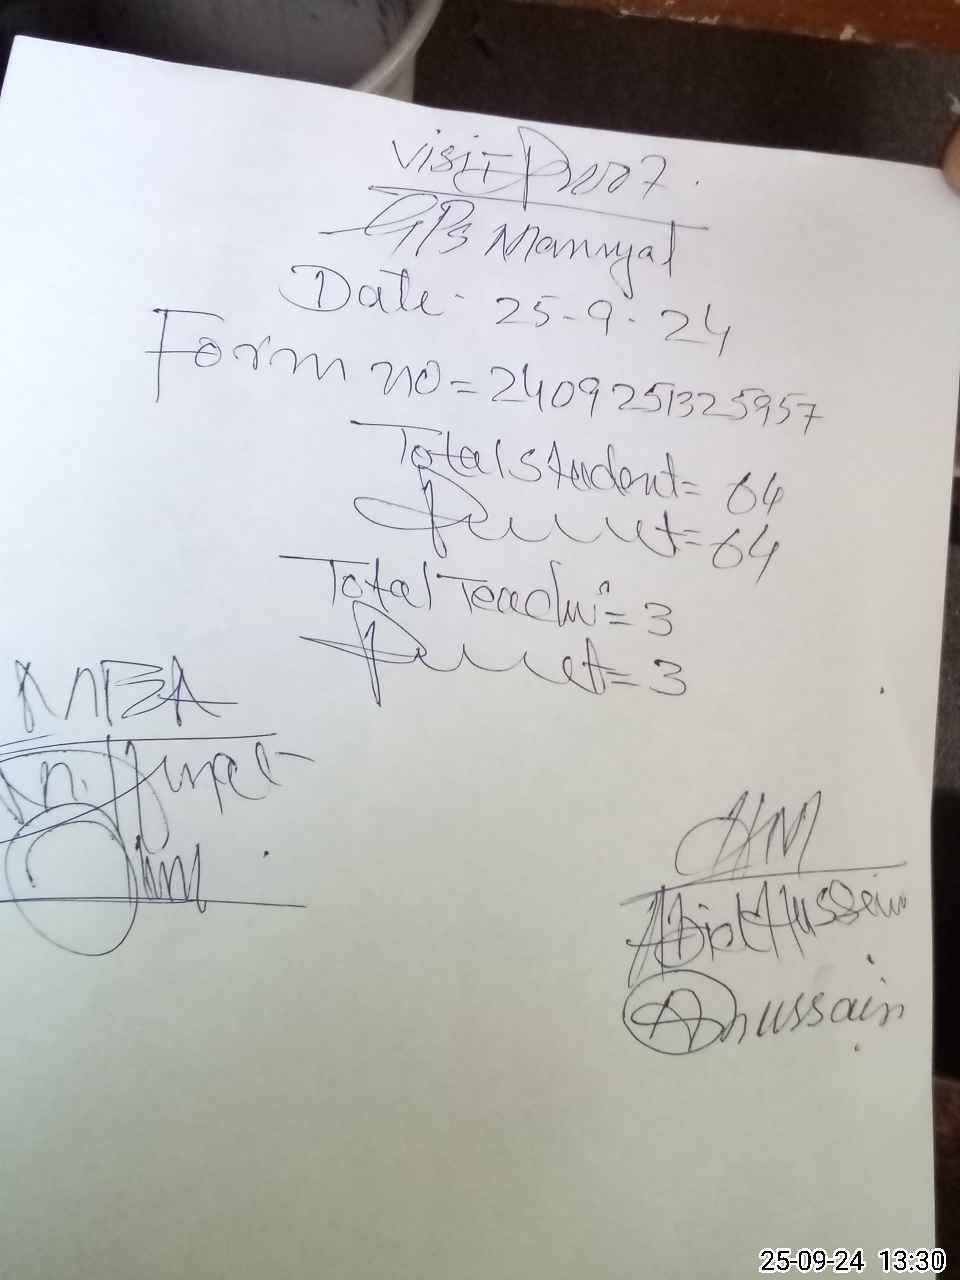 Visit Proof.
GPS Mannyal
Date 25-9-24
Form no = 2409251325957
Total student = 64
Present = 64
Total Teacher = 3
Present = 3
HM
Abid Hussain
Ahussain
25-09-24 13:30